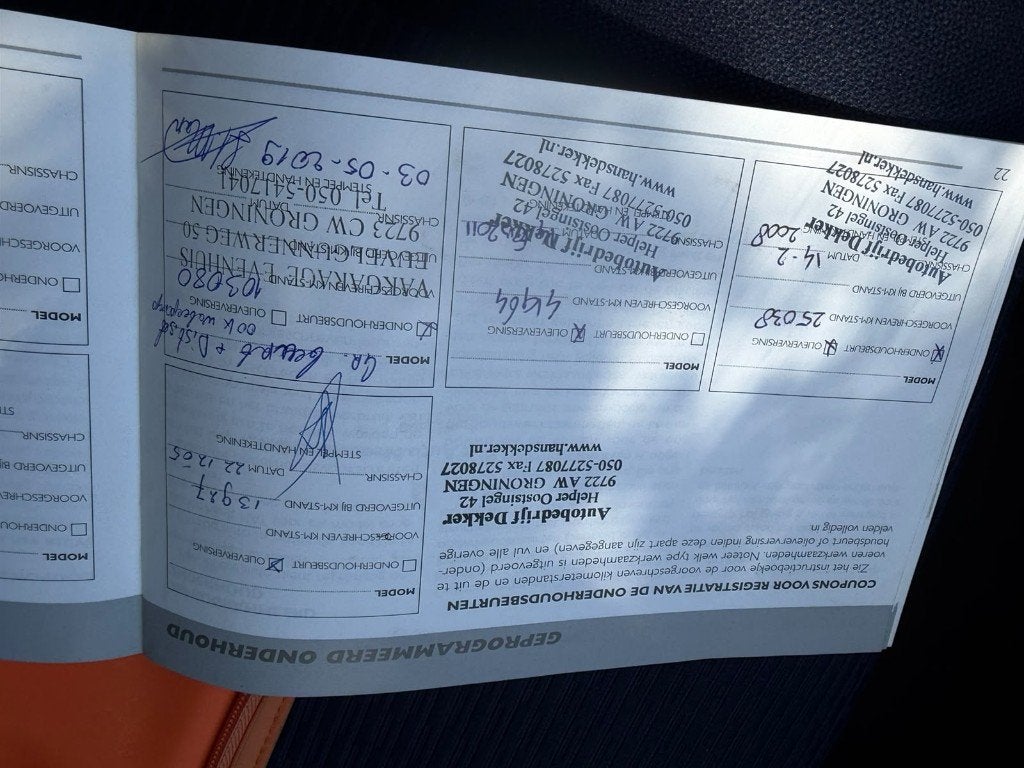 GEPROGRAMMEERD ONDERHOUD
COUPONS VOOR REGISTRATIE VAN DE ONDERHOUDSBEURTEN
Zie het instructieboekje voor de voorgeschreven kilometerstanden en de uit te
voeren werkzaamheden. Noteer welk type werkzaamheden is uitgevoerd (onder-
houdsbeurt of olieverversing indien deze apart zijn aangegeven) en vul alle overige
velden volledig in.
Autobedrijf Dekker
Helper Oostsingel 42
9722 AW GRONINGEN
050-5277087 Fax 5278027
www.hansdekker.nl
MODEL
ONDERHOUDSBEURT OLIEVERVERSING
VOORGESCHREVEN KM-STAND
UITGEVOERD BIJ KM-STAND 13987
CHASSISNR. DATUM 22.12.05
STEMPEL EN HANDTEKENING
MODEL
ONDERHOUDSBEURT OLIEVERVERSING
VOORGESCHREVEN KM-STAND 25038
UITGEVOERD BIJ KM-STAND
CHASSISNR. DATUM 14-2-2008
Autobedrijf Dekker
Helper Oostsingel 42
9722 AW GRONINGEN
050-5277087 Fax 5278027
www.hansdekker.nl
MODEL
ONDERHOUDSBEURT OLIEVERVERSING
VOORGESCHREVEN KM-STAND 44964
UITGEVOERD BIJ KM-STAND
CHASSISNR. 2011
Autobedrijf Dekker
Helper Oostsingel 42
9722 AW GRONINGEN
STEMPEL EN HANDTEKENING
050-5277087 Fax 5278027
www.hansdekker.nl
MODEL Gr. beurt + Dist.set
ONDERHOUDSBEURT OLIEVERVERSING
VOORGESCHREVEN KM-STAND 103080
VAKGARAGE EVENHUIS
UITGEVOERD BIJ KM-STAND
9723 CW GRONINGEN
CHASSISNR. DATUM
Tel. 050-5417041
STEMPEL EN HANDTEKENING
03-05-2019
22
MODEL
ONDERHOU
VOORGESCHREV
UITGEVOERD BIJ
CHASSISNR.
ST
MODEL
ONDERHOUD
VOORGESCHREV
UITGEVOERD
CHASSISNR.